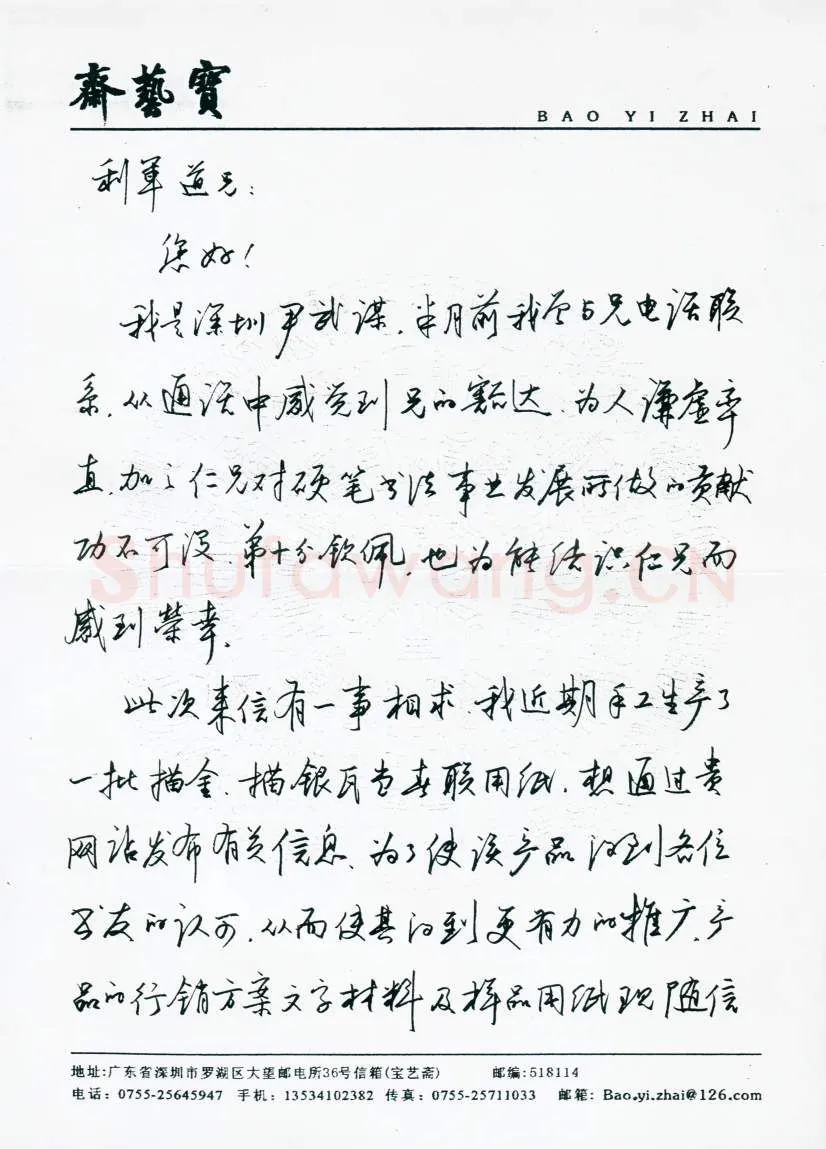 齋藝寶
BAO YI ZHAI
利軍道兄：
您好！
我是深圳尹武谋，半月前我曾与兄电话联
系，从通话中感觉到兄的豁达、为人谦虚率
直，加之仁兄对硬笔书法事业发展所做的贡献
功不可没，弟十分钦佩，也为能结识仁兄而
感到荣幸。
此次来信有一事相求，我近期手工生产了
一批描金、描银瓦当春联用纸，想通过贵
网站发布有关信息，为了使该产品得到各位
书友的认可，从而使其得到更有力的推广，产
品的行销方案文字材料及样品用纸现随信
Shufawang.CN
地址:广东省深圳市罗湖区大望邮电所36号信箱(宝艺斋) 邮编:518114
电话: 0755-25645947 手机: 13534102382 传真: 0755-25711033 邮箱: Bao.yi.zhai@126.com